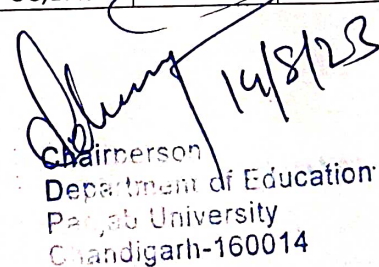 14/8/23
Chairperson
Department of Education
Panjab University
Chandigarh-160014